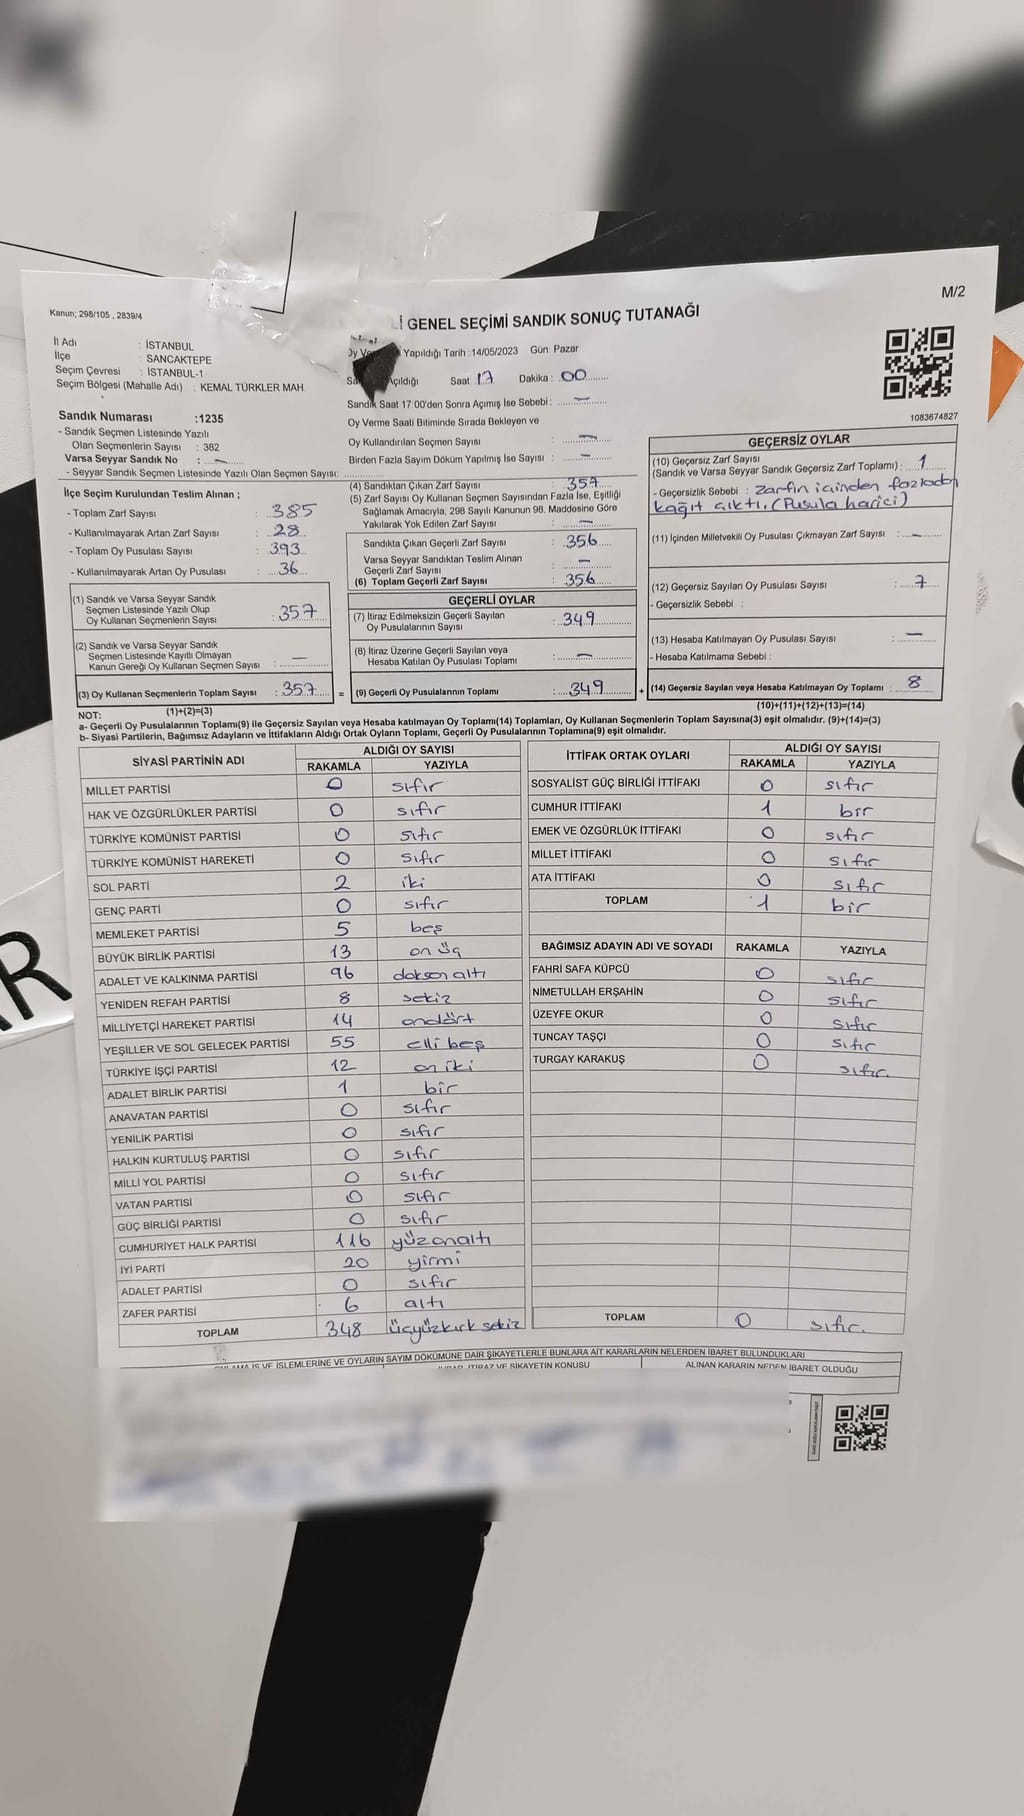 M/2
Kanun; 298/105 , 2839/4
GENEL SEÇİMİ SANDIK SONUÇ TUTANAĞI
İl Adı : İSTANBUL
İlçe : SANCAKTEPE
Seçim Çevresi : İSTANBUL-1
Seçim Bölgesi (Mahalle Adı) : KEMAL TÜRKLER MAH.
Oy Yapıldığı Tarih :14/05/2023 Gün: Pazar
Açıldığı Saat: 17 Dakika : 00
Sandık Saat 17:00'den Sonra Açımış İse Sebebi : —
Oy Verme Saati Bitiminde Sırada Bekleyen ve
Oy Kullandırılan Seçmen Sayısı : —
Birden Fazla Sayım Döküm Yapılmış İse Sayısı : —
1083674827
Sandık Numarası :1235
- Sandık Seçmen Listesinde Yazılı
Olan Seçmenlerin Sayısı : 382
Varsa Seyyar Sandık No : —
- Seyyar Sandık Seçmen Listesinde Yazılı Olan Seçmen Sayısı:
İlçe Seçim Kurulundan Teslim Alınan ;
- Toplam Zarf Sayısı : 385
- Kullanılmayarak Artan Zarf Sayısı : 28
- Toplam Oy Pusulası Sayısı : 393
- Kullanılmayarak Artan Oy Pusulası : 36
(1) Sandık ve Varsa Seyyar Sandık
Seçmen Listesinde Yazılı Olup
Oy Kullanan Seçmenlerin Sayısı : 357
(2) Sandık ve Varsa Seyyar Sandık
Seçmen Listesinde Kayıtlı Olmayan
Kanun Gereği Oy Kullanan Seçmen Sayısı : —
(3) Oy Kullanan Seçmenlerin Toplam Sayısı : 357 =
(1)+(2)=(3)
(4) Sandıktan Çıkan Zarf Sayısı : 357
(5) Zarf Sayısı Oy Kullanan Seçmen Sayısından Fazla İse, Eşitliği
Sağlamak Amacıyla, 298 Sayılı Kanunun 98. Maddesine Göre
Yakılarak Yok Edilen Zarf Sayısı : —
Sandıkta Çıkan Geçerli Zarf Sayısı : 356
Varsa Seyyar Sandıktan Teslim Alınan
Geçerli Zarf Sayısı : —
(6) Toplam Geçerli Zarf Sayısı : 356
GEÇERLİ OYLAR
(7) İtiraz Edilmeksizin Geçerli Sayılan
Oy Pusulalarının Sayısı : 349
(8) İtiraz Üzerine Geçerli Sayılan veya
Hesaba Katılan Oy Pusulası Toplamı : —
(9) Geçerli Oy Pusulalarının Toplamı : 349 +
GEÇERSİZ OYLAR
(10) Geçersiz Zarf Sayısı
(Sandık ve Varsa Seyyar Sandık Geçersiz Zarf Toplamı) : 1
- Geçersizlik Sebebi : Zarfın içinden fazladan
kağıt çıktı. (Pusula harici)
(11) İçinden Milletvekili Oy Pusulası Çıkmayan Zarf Sayısı : —
(12) Geçersiz Sayılan Oy Pusulası Sayısı : 7
- Geçersizlik Sebebi :
(13) Hesaba Katılmayan Oy Pusulası Sayısı : —
- Hesaba Katılmama Sebebi :
(14) Geçersiz Sayılan veya Hesaba Katılmayan Oy Toplamı : 8
(10)+(11)+(12)+(13)=(14)
NOT:
a- Geçerli Oy Pusulalarının Toplamı(9) ile Geçersiz Sayılan veya Hesaba katılmayan Oy Toplamı(14) Toplamları, Oy Kullanan Seçmenlerin Toplam Sayısına(3) eşit olmalıdır. (9)+(14)=(3)
b- Siyasi Partilerin, Bağımsız Adayların ve İttifakların Aldığı Ortak Oyların Toplamı, Geçerli Oy Pusulalarının Toplamına(9) eşit olmalıdır.
SİYASİ PARTİNİN ADI ALDIĞI OY SAYISI
RAKAMLA YAZIYLA
MİLLET PARTİSİ 0 sıfır
HAK VE ÖZGÜRLÜKLER PARTİSİ 0 sıfır
TÜRKİYE KOMÜNİST PARTİSİ 0 sıfır
TÜRKİYE KOMÜNİST HAREKETİ 0 sıfır
SOL PARTİ 2 iki
GENÇ PARTİ 0 sıfır
MEMLEKET PARTİSİ 5 beş
BÜYÜK BİRLİK PARTİSİ 13 on üç
ADALET VE KALKINMA PARTİSİ 96 doksan altı
YENİDEN REFAH PARTİSİ 8 sekiz
MİLLİYETÇİ HAREKET PARTİSİ 14 ondört
YEŞİLLER VE SOL GELECEK PARTİSİ 55 elli beş
TÜRKİYE İŞÇİ PARTİSİ 12 on iki
ADALET BİRLİK PARTİSİ 1 bir
ANAVATAN PARTİSİ 0 sıfır
YENİLİK PARTİSİ 0 sıfır
HALKIN KURTULUŞ PARTİSİ 0 sıfır
MİLLİ YOL PARTİSİ 0 sıfır
VATAN PARTİSİ 0 sıfır
GÜÇ BİRLİĞİ PARTİSİ 0 sıfır
CUMHURİYET HALK PARTİSİ 116 yüzonaltı
İYİ PARTİ 20 yirmi
ADALET PARTİSİ 0 sıfır
ZAFER PARTİSİ 6 altı
TOPLAM 348 üçyüzkırk sekiz
İTTİFAK ORTAK OYLARI ALDIĞI OY SAYISI
RAKAMLA YAZIYLA
SOSYALİST GÜÇ BİRLİĞİ İTTİFAKI 0 sıfır
CUMHUR İTTİFAKI 1 bir
EMEK VE ÖZGÜRLÜK İTTİFAKI 0 sıfır
MİLLET İTTİFAKI 0 sıfır
ATA İTTİFAKI 0 sıfır
TOPLAM 1 bir
BAĞIMSIZ ADAYIN ADI VE SOYADI RAKAMLA YAZIYLA
FAHRİ SAFA KÜPCÜ 0 sıfır
NİMETULLAH ERŞAHİN 0 sıfır
ÜZEYFE OKUR 0 sıfır
TUNCAY TAŞÇI 0 sıfır
TURGAY KARAKUŞ 0 sıfır.
TOPLAM 0 sıfır.
İŞ VE İŞLEMLERİNE VE OYLARIN SAYIM DÖKÜMÜNE DAİR ŞİKAYETLERLE BUNLARA AİT KARARLARIN NELERDEN İBARET BULUNDUKLARI
İTİRAZ VE ŞİKAYETİN KONUSU ALINAN KARARIN NEDEN İBARET OLDUĞU